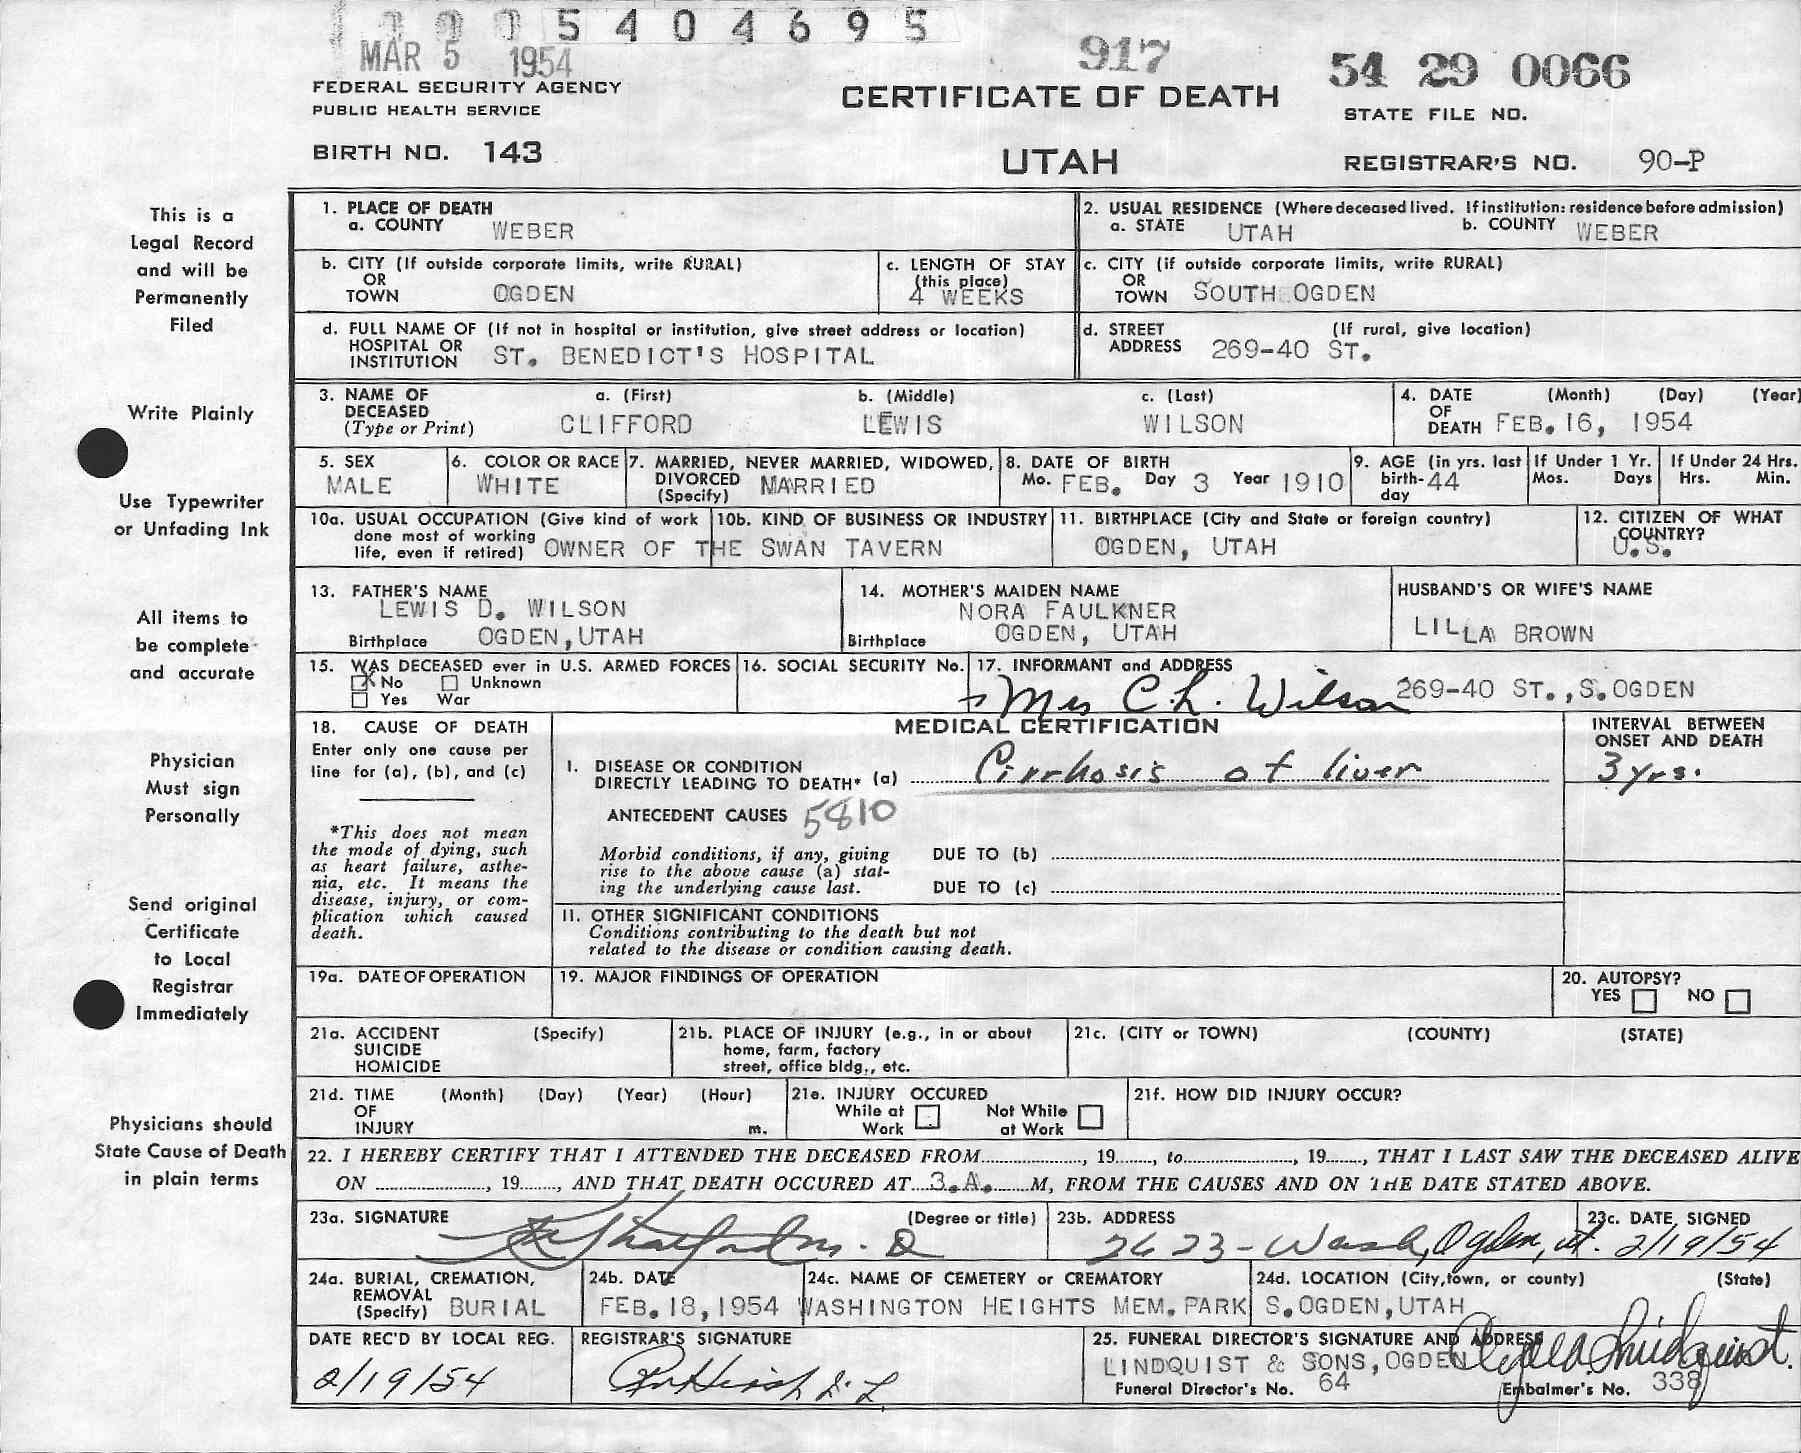 1 9 0 0 5 4 0 4 6 9 5
MAR 5 1954
917
54 29 0066
FEDERAL SECURITY AGENCY
PUBLIC HEALTH SERVICE
CERTIFICATE OF DEATH
STATE FILE NO.
BIRTH NO. 143
UTAH
REGISTRAR'S NO. 90-P
This is a
Legal Record
and will be
Permanently
Filed
Write Plainly
Use Typewriter
or Unfading Ink
All items to
be complete
and accurate
Physician
Must sign
Personally
Send original
Certificate
to Local
Registrar
Immediately
Physicians should
State Cause of Death
in plain terms
1. PLACE OF DEATH
a. COUNTY WEBER
2. USUAL RESIDENCE (Where deceased lived. If institution: residence before admission)
a. STATE UTAH b. COUNTY WEBER
b. CITY (If outside corporate limits, write RURAL)
OR
TOWN OGDEN
c. LENGTH OF STAY
(this place)
4 WEEKS
c. CITY (if outside corporate limits, write RURAL)
OR
TOWN SOUTH OGDEN
d. FULL NAME OF (If not in hospital or institution, give street address or location)
HOSPITAL OR
INSTITUTION ST. BENEDICT'S HOSPITAL
d. STREET (If rural, give location)
ADDRESS 269-40 ST.
3. NAME OF
DECEASED
(Type or Print)
a. (First) b. (Middle) c. (Last)
CLIFFORD LEWIS WILSON
4. DATE (Month) (Day) (Year)
OF
DEATH FEB. 16, 1954
5. SEX
MALE
6. COLOR OR RACE
WHITE
7. MARRIED, NEVER MARRIED, WIDOWED,
DIVORCED MARRIED
(Specify)
8. DATE OF BIRTH
Mo. FEB. Day 3 Year 1910
9. AGE (in yrs. last
birth- 44
day
If Under 1 Yr.
Mos. Days
If Under 24 Hrs.
Hrs. Min.
10a. USUAL OCCUPATION (Give kind of work
done most of working
life, even if retired)
10b. KIND OF BUSINESS OR INDUSTRY
OWNER OF THE SWAN TAVERN
11. BIRTHPLACE (City and State or foreign country)
OGDEN, UTAH
12. CITIZEN OF WHAT
COUNTRY?
U.S.
13. FATHER'S NAME
LEWIS D. WILSON
Birthplace OGDEN, UTAH
14. MOTHER'S MAIDEN NAME
NORA FAULKNER
Birthplace OGDEN, UTAH
HUSBAND'S OR WIFE'S NAME
LILLA BROWN
15. WAS DECEASED ever in U.S. ARMED FORCES
X No Unknown
Yes War
16. SOCIAL SECURITY No.
17. INFORMANT and ADDRESS
Mrs C.L. Wilson 269-40 ST., S. OGDEN
18. CAUSE OF DEATH
Enter only one cause per
line for (a), (b), and (c)
*This does not mean
the mode of dying, such
as heart failure, asthe-
nia, etc. It means the
disease, injury, or com-
plication which caused
death.
MEDICAL CERTIFICATION
INTERVAL BETWEEN
ONSET AND DEATH
I. DISEASE OR CONDITION
DIRECTLY LEADING TO DEATH* (a) Cirrhosis of liver 3 yrs.
ANTECEDENT CAUSES 5810
Morbid conditions, if any, giving
rise to the above cause (a) stat-
ing the underlying cause last.
DUE TO (b)
DUE TO (c)
II. OTHER SIGNIFICANT CONDITIONS
Conditions contributing to the death but not
related to the disease or condition causing death.
19a. DATE OF OPERATION
19. MAJOR FINDINGS OF OPERATION
20. AUTOPSY?
YES NO
21a. ACCIDENT (Specify)
SUICIDE
HOMICIDE
21b. PLACE OF INJURY (e.g., in or about
home, farm, factory
street, office bldg., etc.
21c. (CITY or TOWN) (COUNTY) (STATE)
21d. TIME (Month) (Day) (Year) (Hour)
OF
INJURY m.
21e. INJURY OCCURED
While at Work Not While at Work
21f. HOW DID INJURY OCCUR?
22. I HEREBY CERTIFY THAT I ATTENDED THE DECEASED FROM, 19, to, 19, THAT I LAST SAW THE DECEASED ALIVE
ON, 19, AND THAT DEATH OCCURED AT 3.A. M, FROM THE CAUSES AND ON THE DATE STATED ABOVE.
23a. SIGNATURE (Degree or title)
M.D
23b. ADDRESS
2623-Wash, Ogden, ut.
23c. DATE SIGNED
2/19/54
24a. BURIAL, CREMATION,
REMOVAL
(Specify) BURIAL
24b. DATE
FEB. 18, 1954
24c. NAME OF CEMETERY or CREMATORY
WASHINGTON HEIGHTS MEM. PARK
24d. LOCATION (City, town, or county) (State)
S. OGDEN, UTAH
DATE REC'D BY LOCAL REG.
2/19/54
REGISTRAR'S SIGNATURE
25. FUNERAL DIRECTOR'S SIGNATURE AND ADDRESS
LINDQUIST & SONS, OGDEN
Lindquist.
Funeral Director's No. 64
Embalmer's No. 338